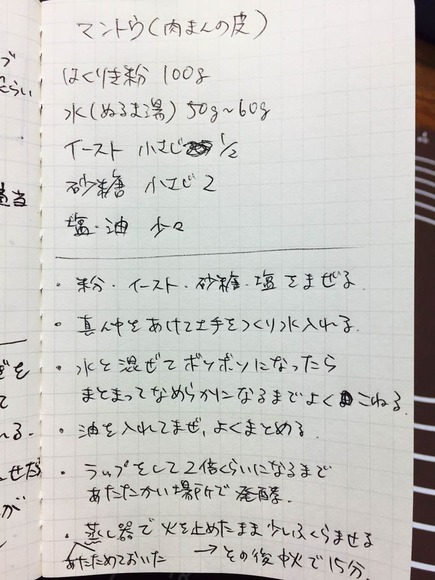 マントウ(肉まんの皮)
はくりき粉 100g
水(ぬるま湯) 50g~60g
イースト 小さじ 1/2
砂糖 小さじ 2
塩・油 少々
・粉・イースト・砂糖・塩をまぜる.
・真ん中をあけて土手をつくり水入れる.
・水と混ぜてボソボソになったら
まとまってなめらかになるまでよくこねる.
・油を入れてまぜ、よくまとめる.
・ラップをして2倍くらいになるまで
あたたかい場所で発酵.
・蒸し器で火を止めたまま少しふくらませる
あたためておいた →その後中火で15分.